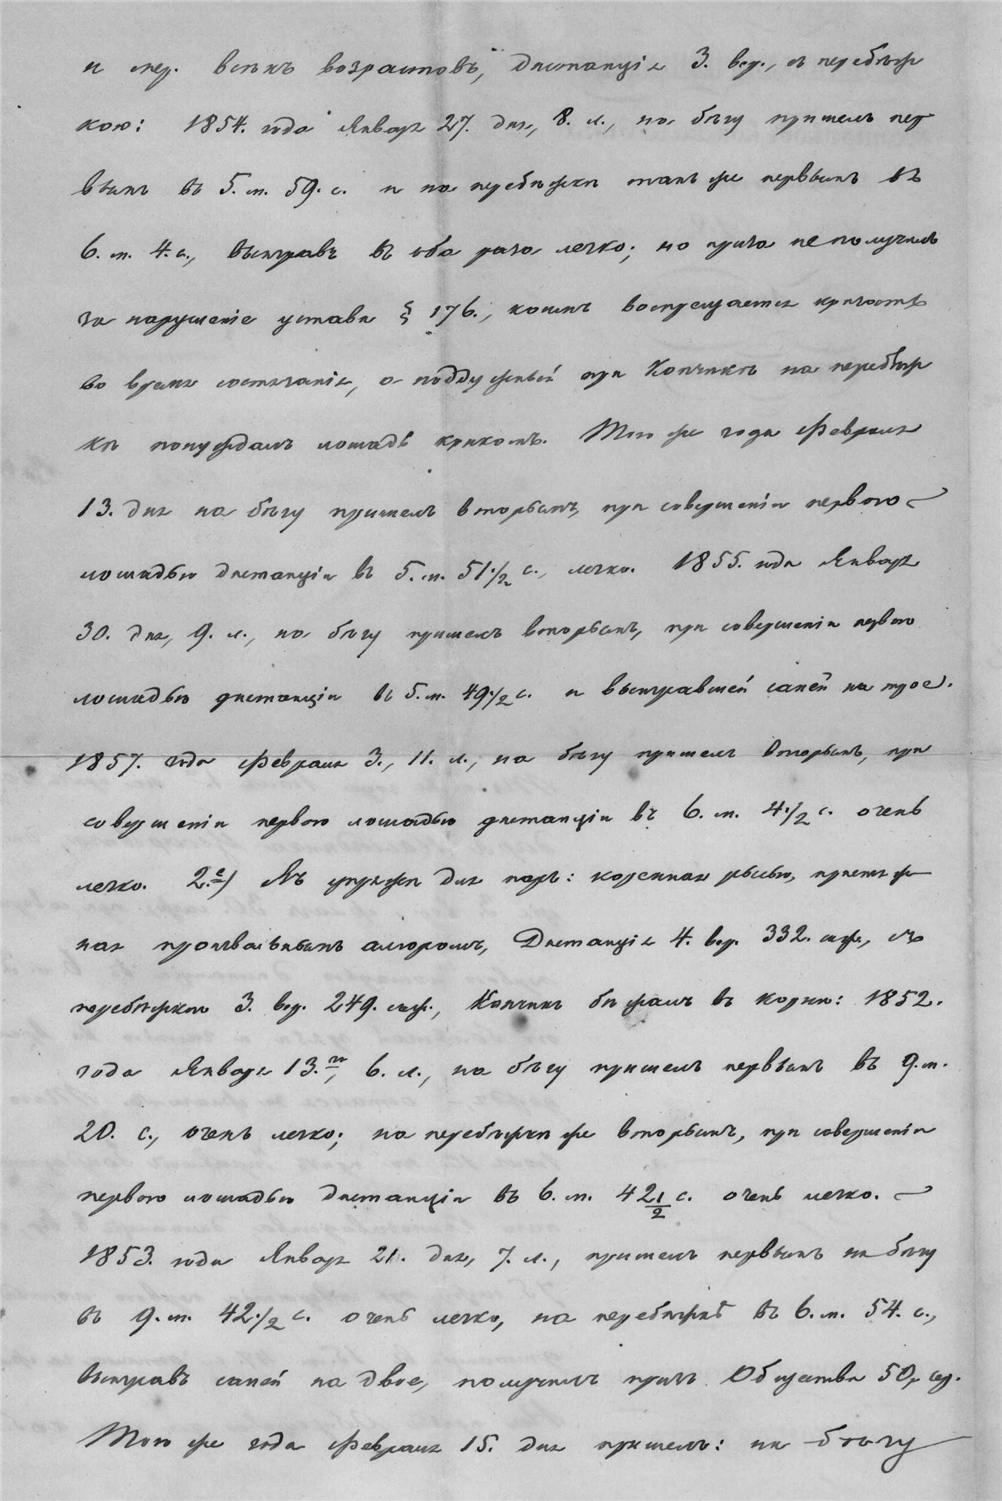 и мер. всѣхъ возрастовъ, дистанція 3. вер., съ перебѣж
кою: 1854. года Января 27. дня, 8. л., на бѣгу пришелъ пер
вымъ въ 5. м. 59. с. и на перебѣжки также первымъ въ
6. м. 4. с., выигравъ въ оба раза легко; но приза не получилъ
за нарушеніе устава § 176., коимъ воспрещается кричать
во время состязанія, а поддужный при Копчикъ на перебѣж
къ понуждалъ лошадь крикомъ. Того же года Февраля
13. дня на бѣгу пришелъ вторымъ, при совершеніи первою
лошадью дистанціи въ 5. м. 51.1/2 с., легко. 1855. года Января
30. дня, 9. л., на бѣгу пришелъ вторымъ, при совершеніи первою
лошадью дистанціи въ 5. м. 49.1/2 с. и выигравшей саней на трое.
1857. года Февраля 3., 11. л., на бѣгу пришелъ вторымъ, при
совершеніи первою лошадью дистанціи въ 6. м. 4.1/2 с. очень
легко. 2.е) Въ упряжи для паръ: коренная рысью, пристяж
ная произвольнымъ аллюромъ, Дистанція 4. вер. 332. саж., съ
перебѣжкою 3. вер. 249. саж., Копчикъ бѣжалъ въ корню: 1852.
года Января 13.го, 6. л., на бѣгу пришелъ первымъ въ 9. м.
20. с., очень легко; на перебѣжки же вторымъ, при совершеніи
первою лошадью дистанціи въ 6. м. 42 1/2 с. очень легко.
1853. года Января 21. дня, 7. л., пришелъ первымъ на бѣгу
въ 9. м. 42.1/2 с. очень легко, на перебѣжкѣ въ 6. м. 54. с.,
выигравъ саней на двое, получилъ призъ Общества 50, сер.
Того же года Февраля 15. дня пришелъ: на бѣгу